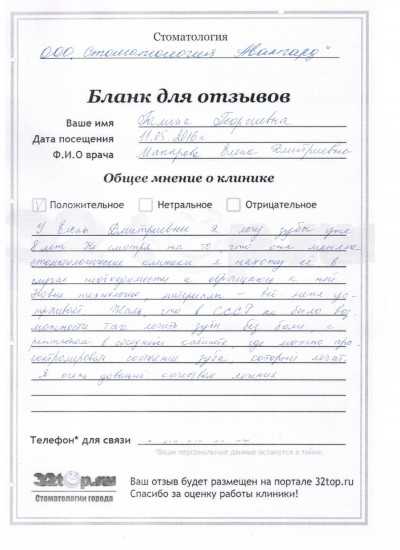 Стоматология
ООО "Стоматология Авангард"
Бланк для отзывов
Ваше имя Галина Георгиевна
Дата посещения 11.05.2016 г
Ф.И.О врача Макарова Елена Дмитриевна
Общее мнение о клинике
V Положительное Нетральное Отрицательное
У Елены Дмитриевны я лечу зубы уже
8 лет. Не смотря на то, что она меняла
стоматологические клиники я нахожу её и в
случае необходимости я обращаюсь к ней.
Новые технологии, материалы - всё меня уст-
раивает. Жаль, что в СССР не было воз-
можности так лечить зубы без боли, с
рентгеном в соседнем кабинете, где можно про-
контролировать состояние зуба, который лечат.
Я очень довольна качеством лечения
Телефон* для связи
*Ваши персональные данные останутся в тайне.
32top.ru
Стоматологии города
Ваш отзыв будет размещен на портале 32top.ru
Спасибо за оценку работы клиники!